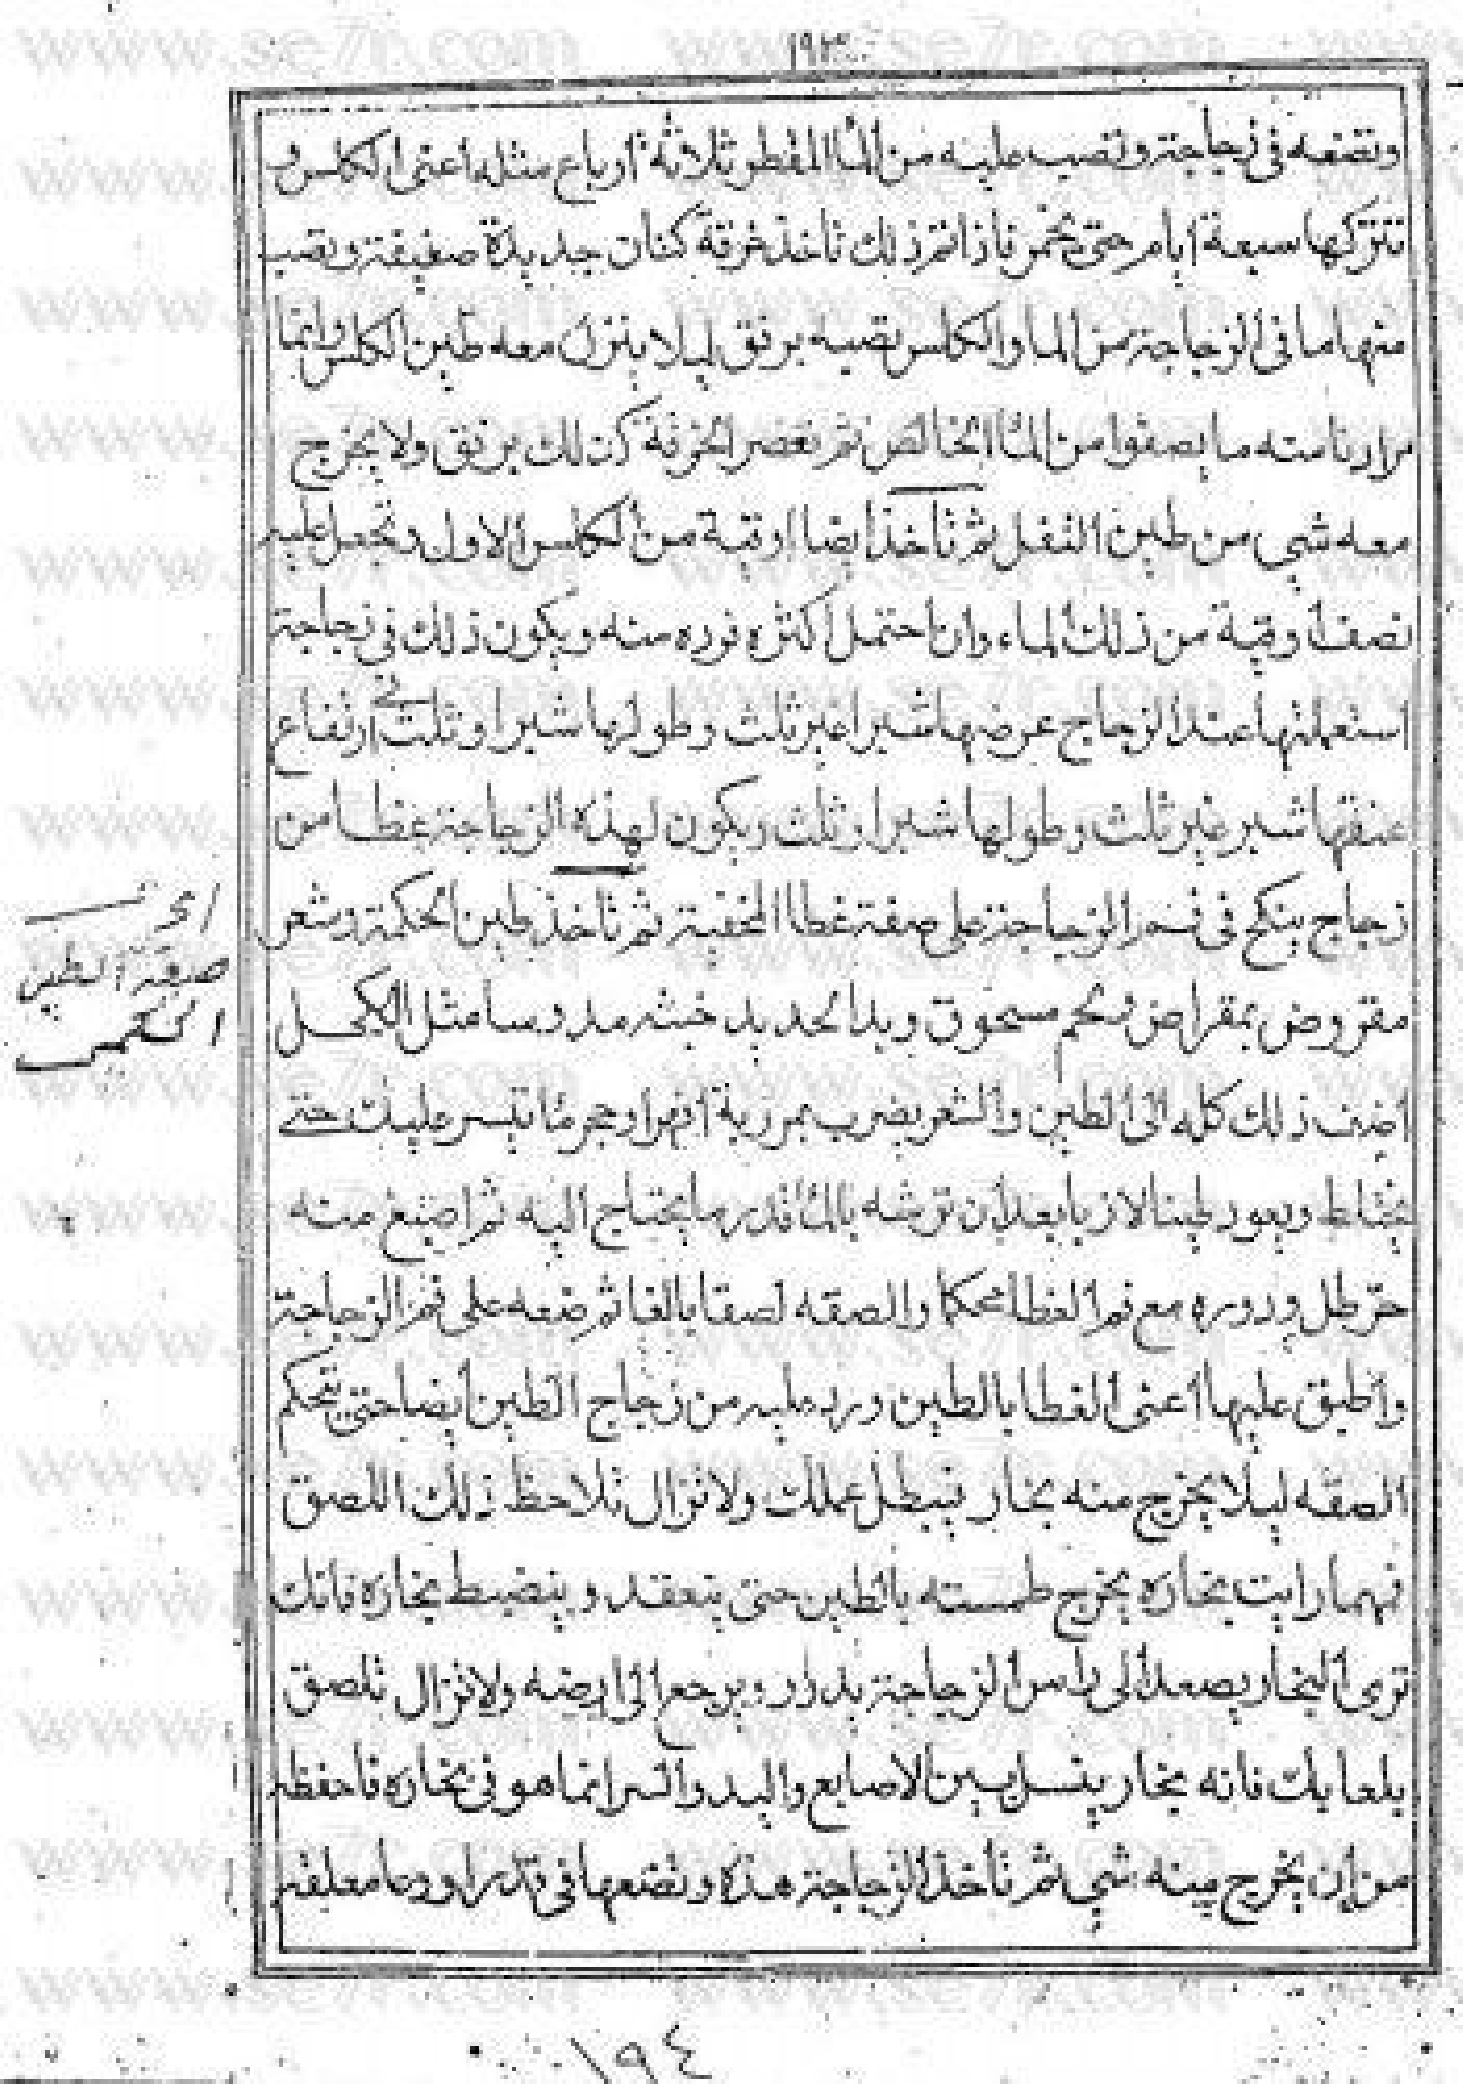 ١٩٣
وتضعه في زجاجة وتصب عليه من الما المقطر ثلاثة ارباع مثله اعنى الكلس و
تتركها سبعة ايام حتى يخمر فاذا تم ذلك تاخذ خرقة كتان جديدة صفيقة وتصب
منها ما في الزجاجة من الما والكلس تصبه برفق ليلا ينزل معه طين الكلس وانما
مرادنا منه ما يصفوا من الما الخالص ثم تعصر الخرقة كذلك برفق ولا يخرج
معه شي من طين الثفل ثم تاخذ ايضا اوقية من الكلس الاول وتجعل عليه
نصف اوقية من ذلك الماء وان احتمل اكثره فرده منه ويكون ذلك في زجاجة
استعملتها عند الزجاج عرضها شبرا غير ثلث وطولها شبرا وثلث ارتفاع
عنقها شبر غير ثلث وطولها شبرا وثلث ويكون لهذه الزجاجة غطا من
زجاج ينكح في فم الزجاجة على صفة غطا الحقية ثم تاخذ طين الحكمة وشعر
مقروض بمقراض وفحم مسحوق وبدا الحديد خبثه مدروسا مثل الكحل
اضف ذلك كله الى الطين والشعر يضرب بمرزبة افهرا وحجر ما تيسر عليك حتى
يختلط ويعود طينا لازبا بعد ان ترشه بالما قدر ما يحتاج اليه ثم اصنع منه
ودوره مع فم الغطا محكما والصقه لصقا بالغا ثم ضعه على فم الزجاجة
واطبق عليها اعنى الغطا بالطين وزد عليه من زجاج الطين ايضا حتى يتحكم
الصقه ليلا يخرج منه بخار فيبطل عملك ولا تزال تلاحظ ذلك اللصق
فمهما رايت بخاره يخرج طمسته بالطين حتى ينعقد وينضبط بخاره فانك
ترى البخار يصعد الى راس الزجاجة بدار ويرجع الى ارضه ولا تزال تلصق
بلعابك فانه بخار ينسل بين الاصابع واليد والسر انما هو في بخاره فاحفظه
من ان يخرج منه شي ثم تاخذ الزجاجة هذه وتضعها في قدر
صفة الطين
١٩٤